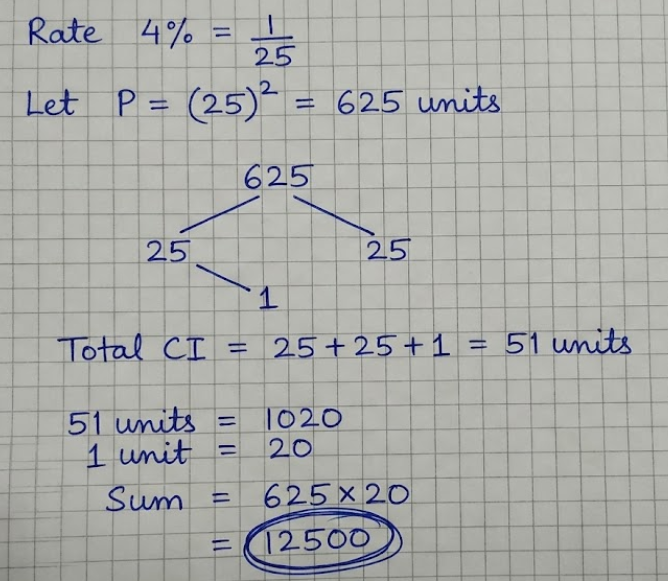 Rate 4% = 1/25
Let P = (25)² = 625 units
625
25 25
1
Total CI = 25 + 25 + 1 = 51 units
51 units = 1020
1 unit = 20
Sum = 625 × 20
= 12500